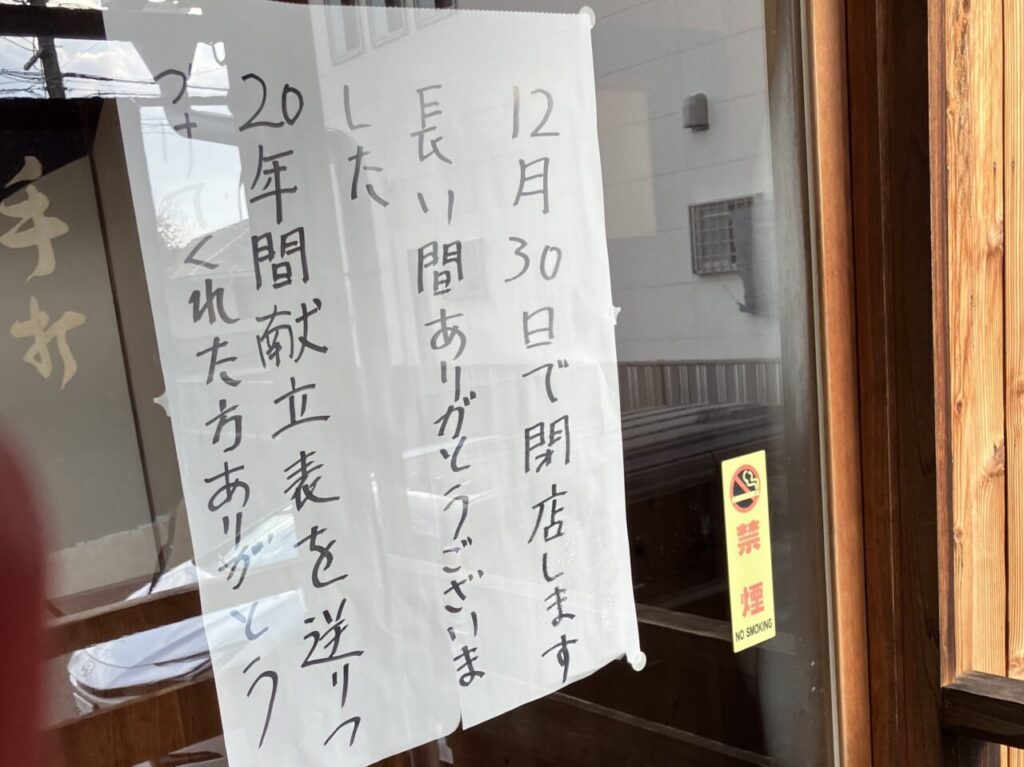 12月30日で閉店します
長い間ありがとうございま
した
20年間献立表を送りつ
づけてくれた方ありがとう
手打
禁煙
NO SMOKING